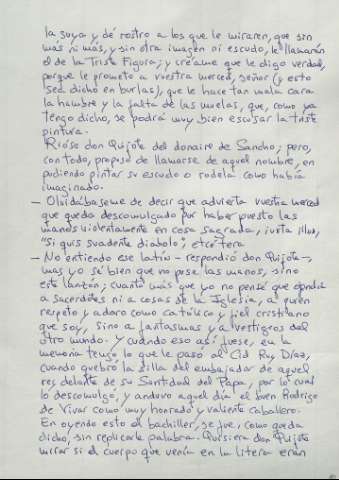 la suya y dé rostro a los que le miraren, que sin
más ni más, y sin otra imagen ni escudo, le llamarán
el de la Triste Figura; y créame que le digo verdad,
porque le prometo a vuestra merced, señor (y esto
sea dicho en burlas), que le hace tan mala cara
la hambre y la falta de las muelas, que, como ya
tengo dicho, se podrá muy bien escusar la triste
pintura.
Rióse don Quijote del donaire de Sancho; pero,
con todo, propuso de llamarse de aquel nombre, en
pudiendo pintar su escudo o rodela como había
imaginado.
— Olvidábaseme de decir que advierta vuestra merced
que queda descomulgado por haber puesto las
manos violentamente en cosa sagrada, iuxta illud,
"Si quis suadente diabolo", etcétera
— No entiendo ese latín - respondió don Quijote -,
mas yo sé bien que no puse las manos, sino
este lanzón; cuanto más que yo no pensé que ofendía
a sacerdotes ni a cosas de la Iglesia, a quien
respeto y adoro como católico y fiel cristiano
que soy, sino a fantasmas y a vestigios del
otro mundo. Y cuando eso así fuese, en la
memoria tengo lo que le pasó al Cid Ruy Díaz,
cuando quebró la silla del embajador de aquel
rey delante de su Santidad del Papa, por lo cual
lo descomulgó, y anduvo aquel día el buen Rodrigo
de Vivar como muy honrado y valiente caballero.
En oyendo esto el bachiller, se fue, como queda
dicho, sin replicarle palabra. Quisiera don Quijote
mirar si el cuerpo que venía en la litera eran